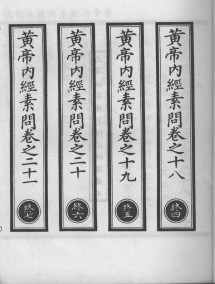 黃帝內經素問卷之十八
終四
黃帝內經素問卷之十九
終五
黃帝內經素問卷之二十
終六
黃帝內經素問卷之二十一
終七